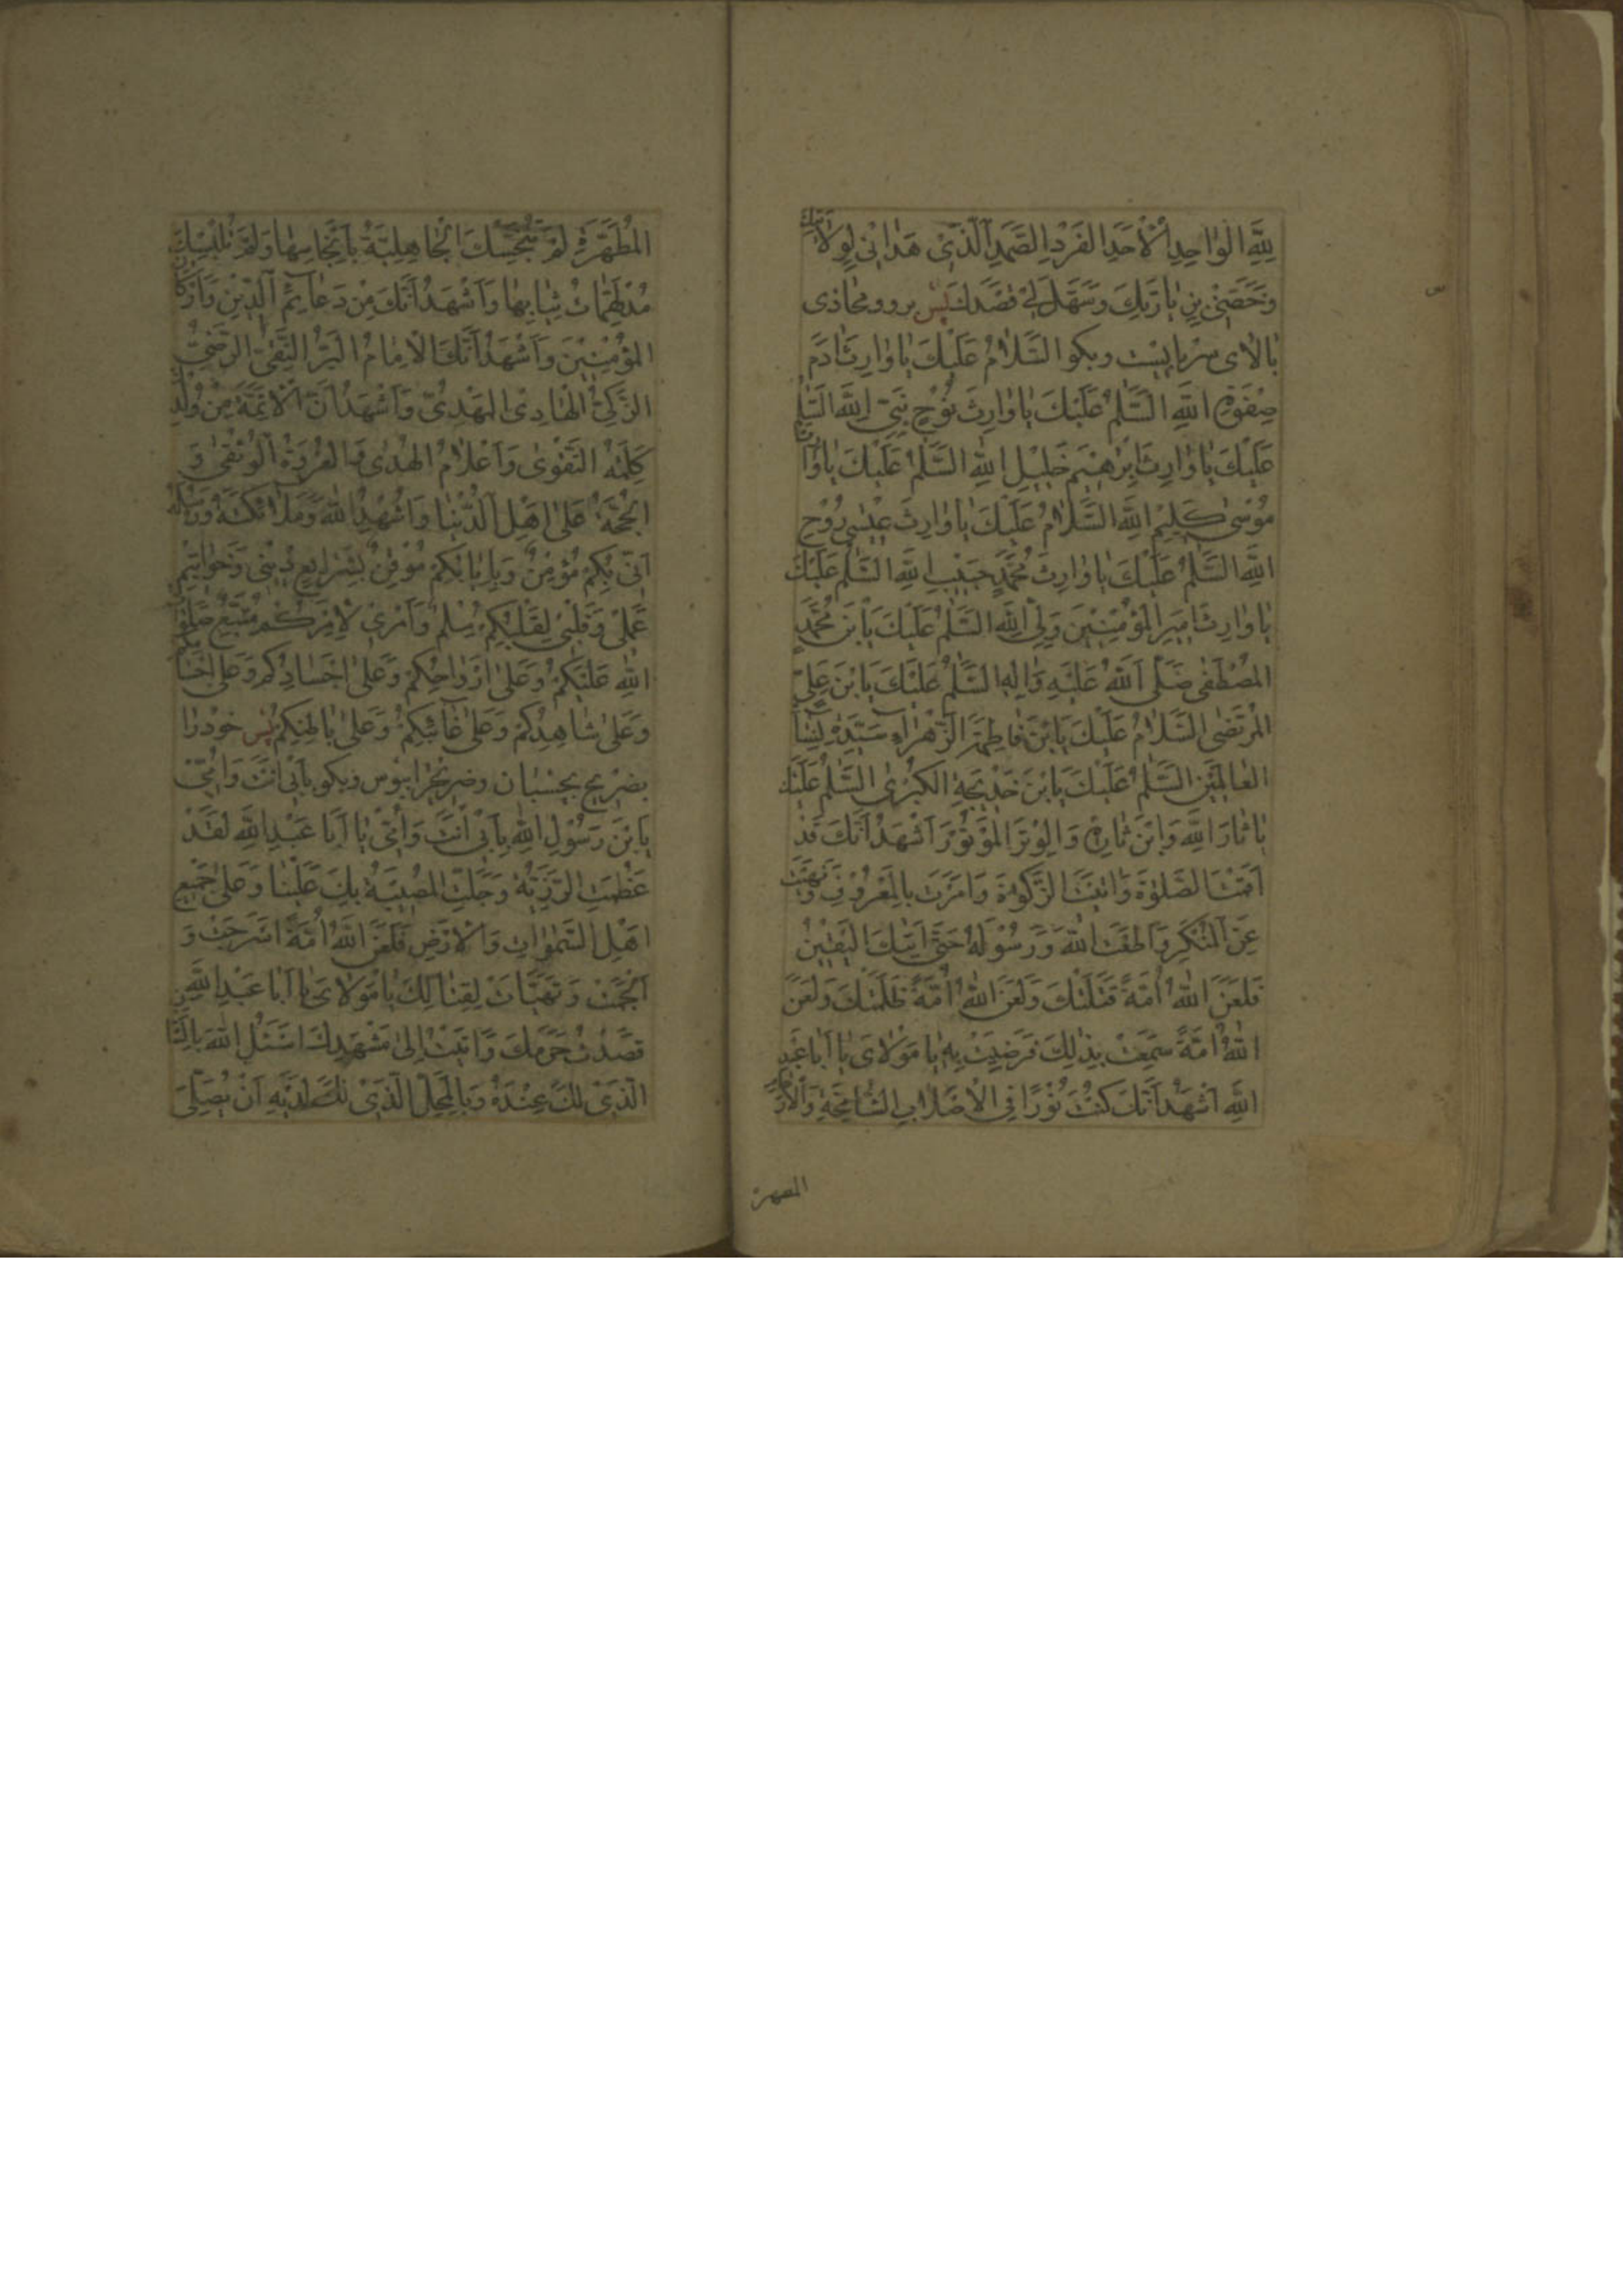 لِلّٰهِ الْوٰاحِدِ الْأَحَدِ الْفَرْدِ الصَّمَدِ الَّذِي هَدٰانِي لِوِلاٰيَتِكَ
وَخَصَّنِي بِزِيٰارَتِكَ وَسَهَّلَ لِي قَصْدَكَ پس برو و محاذی
بالای سر بایست و بکو السَّلاٰمُ عَلَيْكَ يٰا وٰارِثَ اٰدَمَ
صِفْوَةِ اللّٰهِ السَّلٰمُ عَلَيْكَ يٰا وٰارِثَ نُوْحٍ نَبِيِّ اللّٰهِ السَّلٰمُ
عَلَيْكَ يٰا وٰارِثَ إِبْرٰهِيْمَ خَلِيْلِ اللّٰهِ السَّلٰمُ عَلَيْكَ يٰا وٰارِثَ
مُوْسٰى كَلِيْمِ اللّٰهِ السَّلاٰمُ عَلَيْكَ يٰا وٰارِثَ عِيْسٰى رُوْحِ
اللّٰهِ السَّلٰمُ عَلَيْكَ يٰا وٰارِثَ مُحَمَّدٍ حَبِيْبِ اللّٰهِ السَّلٰمُ عَلَيْكَ
يٰا وٰارِثَ اَمِيْرِ الْمُؤْمِنِيْنَ وَلِيِّ اللّٰهِ السَّلٰمُ عَلَيْكَ يَا بْنَ مُحَمَّدٍ
الْمُصْطَفٰى صَلَّى اللّٰهُ عَلَيْهِ وَاٰلِهِ السَّلٰمُ عَلَيْكَ يَا بْنَ عَلِيٍّ
الْمُرْتَضٰى السَّلاٰمُ عَلَيْكَ يَا بْنَ فٰاطِمَةَ الزَّهْرٰاءِ سَيِّدَةِ نِسٰاءِ
الْعٰالَمِيْنَ السَّلٰمُ عَلَيْكَ يَا بْنَ خَدِيْجَةِ الْكُبْرٰى السَّلٰمُ عَلَيْكَ
يٰا ثٰارَ اللّٰهِ وَابْنَ ثٰارِهِ وَالْوِتْرَ الْمَوْتُوْرَ اَشْهَدُ اَنَّكَ قَدْ
اَقَمْتَ الصَّلٰوةَ وَاٰتَيْتَ الزَّكٰوةَ وَاَمَرْتَ بِالْمَعْرُوْفِ وَنَهَيْتَ
عَنِ الْمُنْكَرِ وَاَطَعْتَ اللّٰهَ وَرَسُوْلَهُ حَتّٰى اَتٰيكَ الْيَقِيْنُ
فَلَعَنَ اللّٰهُ اُمَّةً قَتَلَتْكَ وَلَعَنَ اللّٰهُ اُمَّةً ظَلَمَتْكَ وَلَعَنَ
اللّٰهُ اُمَّةً سَمِعَتْ بِذٰلِكَ فَرَضِيَتْ بِهِ يٰا مَوْلاٰيَ يٰا اَبٰا عَبْدِ
اللّٰهِ اَشْهَدُ اَنَّكَ كُنْتَ نُوْرًا فِي الْاَصْلاٰبِ الشّٰامِخَةِ وَالْاَرْحٰامِ
المطهرة
الْمُطَهَّرَةِ لَمْ تُنَجِّسْكَ الْجٰاهِلِيَّةُ بِاَنْجٰاسِهٰا وَلَمْ تُلْبِسْكَ مِنْ
مُدْلَهِمّٰاتِ ثِيٰابِهٰا وَاَشْهَدُ اَنَّكَ مِنْ دَعٰائِمِ الدِّيْنِ وَاَرْكٰانِ
الْمُؤْمِنِيْنَ وَاَشْهَدُ اَنَّكَ الْاِمٰامُ الْبَرُّ التَّقِيُّ الرَّضِيُّ
الزَّكِيُّ الْهٰادِي الْمَهْدِيُّ وَاَشْهَدُ اَنَّ الْاَئِمَّةَ مِنْ وُلْدِكَ
كَلِمَةُ التَّقْوٰى وَاَعْلاٰمُ الْهُدٰى وَالْعُرْوَةُ الْوُثْقٰى وَ
الْحُجَّةُ عَلٰى اَهْلِ الدُّنْيٰا وَاُشْهِدُ اللّٰهَ وَمَلاٰئِكَتَهُ وَرُسُلَهُ
اَنِّي بِكُمْ مُؤْمِنٌ وَبِاِيٰابِكُمْ مُوْقِنٌ بِشَرٰايِعِ دِيْنِي وَخَوٰاتِيْمِ
عَمَلِي وَقَلْبِي لِقَلْبِكُمْ سِلْمٌ وَاَمْرِي لِاَمْرِكُمْ مُتَّبِعٌ صَلَوٰاتُ
اللّٰهِ عَلَيْكُمْ وَعَلٰى اَرْوٰاحِكُمْ وَعَلٰى اَجْسٰادِكُمْ وَعَلٰى اَجْسٰامِكُمْ
وَعَلٰى شٰاهِدِكُمْ وَعَلٰى غٰائِبِكُمْ وَعَلٰى بٰاطِنِكُمْ پس خود را
بضریح بچسبان و ضریح را ببوس و بکو بِاَبِي اَنْتَ وَاُمِّي
يَا بْنَ رَسُوْلِ اللّٰهِ بِاَبِي اَنْتَ وَاُمِّي يٰا اَبٰا عَبْدِ اللّٰهِ لَقَدْ
عَظُمَتِ الرَّزِيَّةُ وَجَلَّتِ الْمُصِيْبَةُ بِكَ عَلَيْنٰا وَعَلٰى جَمِيْعِ
اَهْلِ السَّمٰوٰاتِ وَالْاَرْضِ فَلَعَنَ اللّٰهُ اُمَّةً اَسْرَجَتْ وَ
اَلْجَمَتْ وَتَهَيَّاَتْ لِقِتٰالِكَ يٰا مَوْلاٰيَ يٰا اَبٰا عَبْدِ اللّٰهِ
قَصَدْتُ حَرَمَكَ وَاَتَيْتُ اِلٰى مَشْهَدِكَ اَسْئَلُ اللّٰهَ بِالشَّأْنِ
الَّذِي لَكَ عِنْدَهُ وَبِالْمَحَلِّ الَّذِي لَكَ لَدَيْهِ اَنْ يُصَلِّيَ